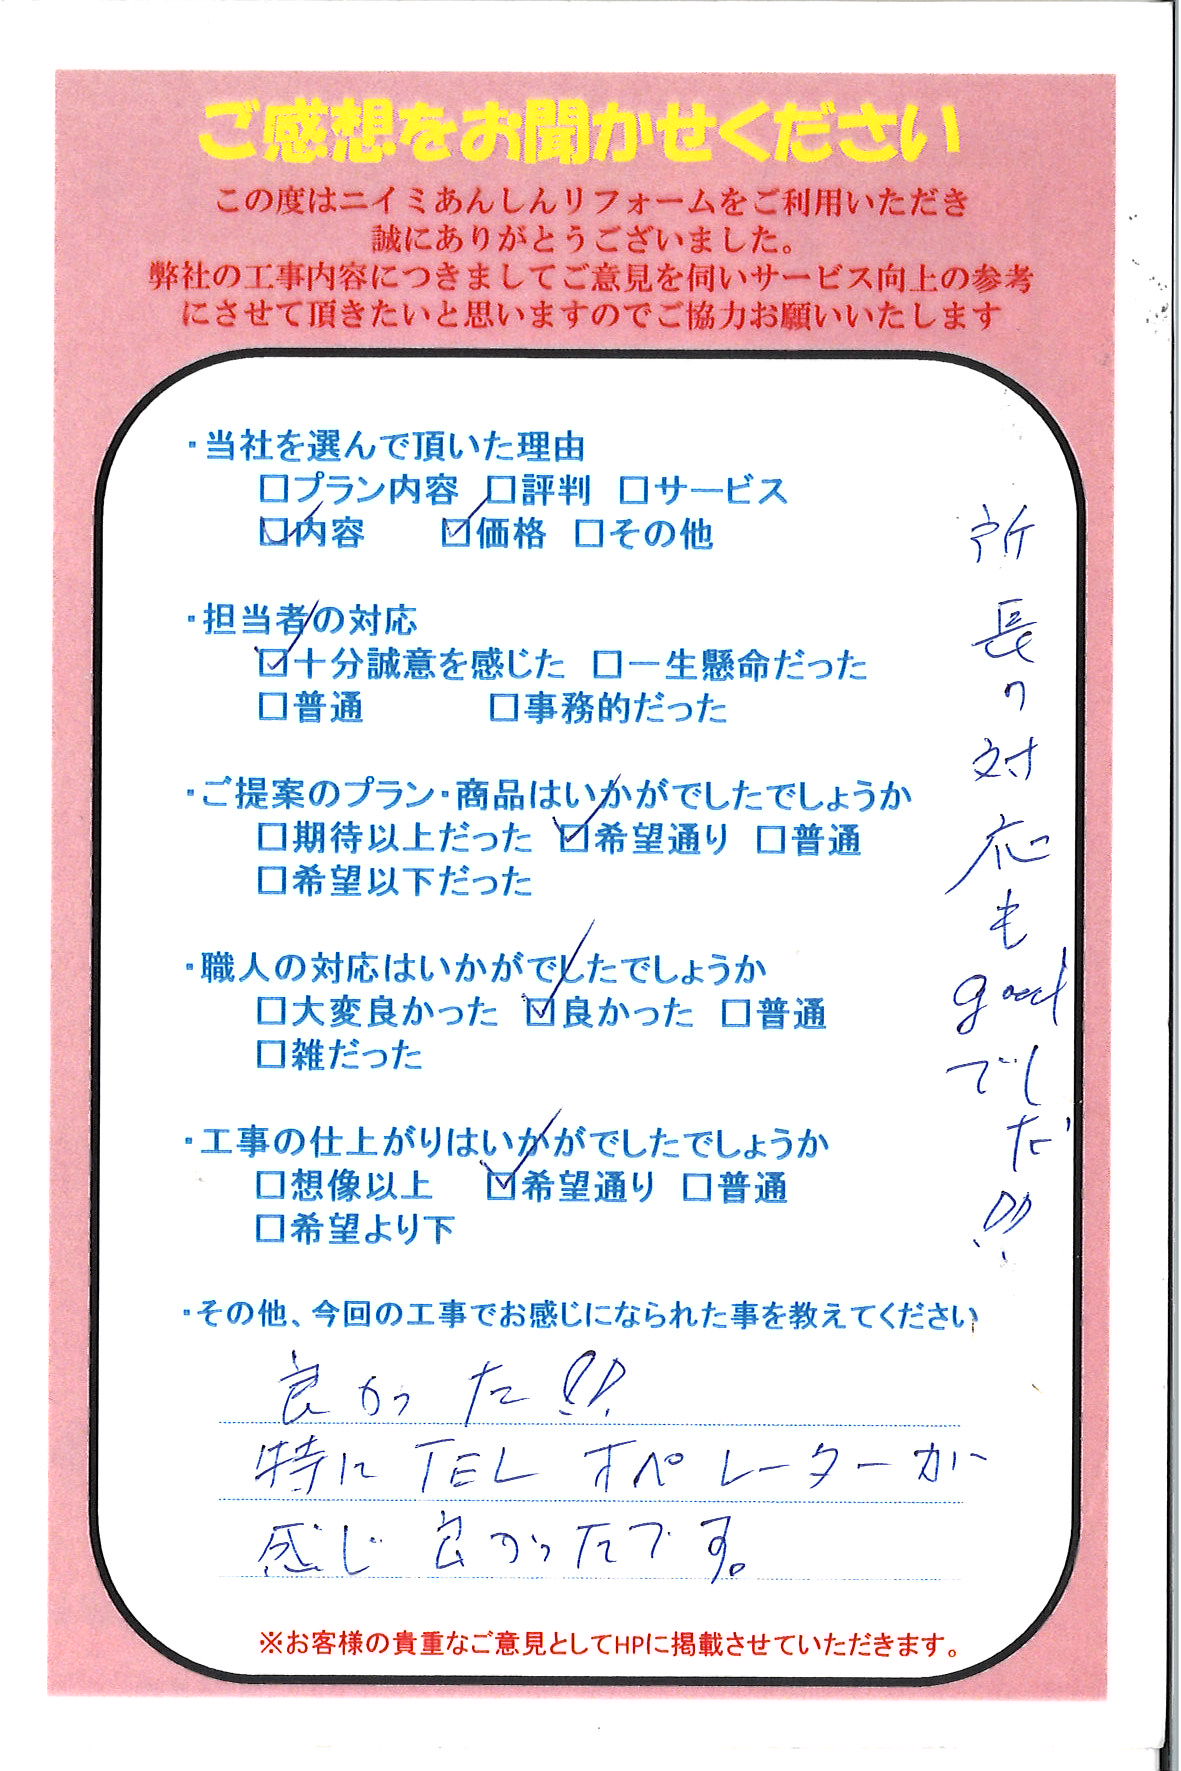 ご感想をお聞かせください
この度はニイミあんしんリフォームをご利用いただき
誠にありがとうございました。
弊社の工事内容につきましてご意見を伺いサービス向上の参考
にさせて頂きたいと思いますのでご協力お願いいたします
・当社を選んで頂いた理由
□プラン内容 □評判 □サービス
☑内容 ☑価格 □その他
・担当者の対応
☑十分誠意を感じた □一生懸命だった
□普通 □事務的だった
・ご提案のプラン・商品はいかがでしたでしょうか
□期待以上だった ☑希望通り □普通
□希望以下だった
・職人の対応はいかがでしたでしょうか
□大変良かった ☑良かった □普通
□雑だった
・工事の仕上がりはいかがでしたでしょうか
□想像以上 ☑希望通り □普通
□希望より下
・その他、今回の工事でお感じになられた事を教えてください
良かった!!
特にTELオペレーターが
感じ良かったです。
所長の対応もgoodでした!!
※お客様の貴重なご意見としてHPに掲載させていただきます。